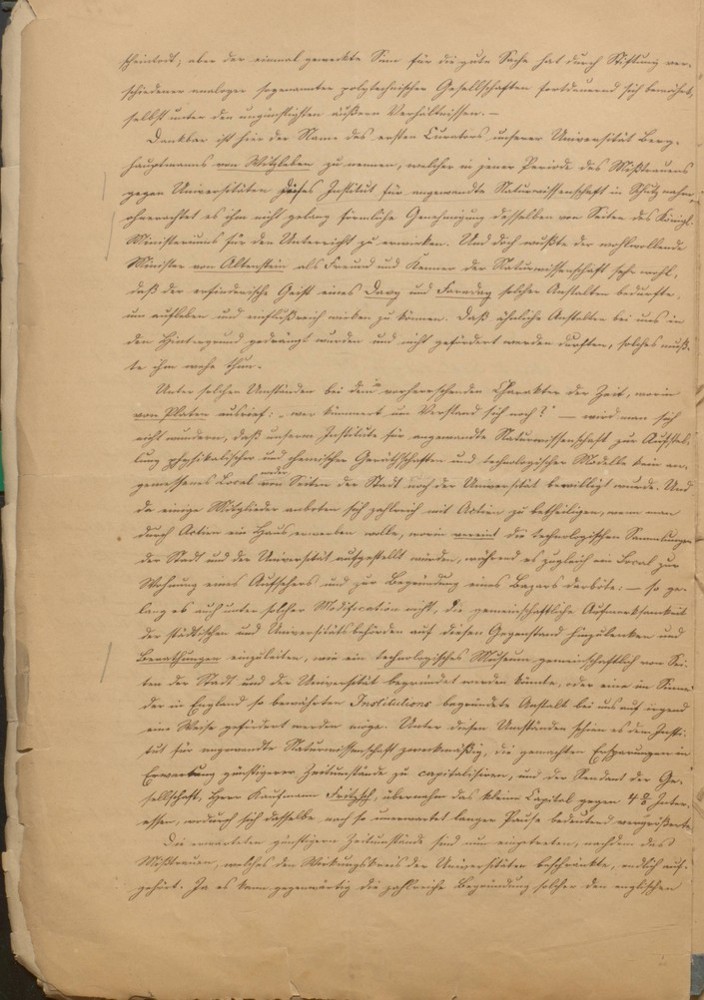 scheintodt; aber der einmal geweckte Sinn für die gute Sache hat durch Stiftung ver-
schiedener analoger sogenannter polytechnischer Gesellschaften fortdauernd sich bewährt,
selbst unter den ungünstigsten äußern Verhältnissen. –
Dankbar ist hier der Name des ersten Curators unserer Universität Berg-
hauptmanns von Witzleben zu nennen, welcher in jener Periode des Mißtrauens
gegen Universitäten dieses Institut für angewandte Naturwissenschaft in Schutz nahm,
ohnerachtet es ihm nicht gelang förmliche Genehmigung desselben von Seiten des Königl.
Ministeriums für den Unterricht zu erwirken. Und doch wußte der wohlwollende
Minister von Altenstein als Freund und Kenner der Naturwissenschaft sehr wohl,
daß der erfinderische Geist eines Davy und Faraday solcher Anstalten bedurfte,
um aufleben und einflußreich wirken zu können. Daß ähnliche Anstalten bei uns in
den Hintergrund gedrängt wurden und nicht gefördert werden durften, solches muß-
te ihm wehe thun.
Unter solchen Umständen bei dem vorherrschenden Charakter der Zeit, worin
von Platen ausrief: „wer kümmert um Verstand sich noch?" – wird man sich
nicht wundern, daß unserm Institute für angewandte Naturwissenschaft zur Aufstel-
lung physikalischer und chemischer Geräthschaften und technologischer Modelle kein an-
gemessenes Local weder von Seiten der Stadt noch der Universität bewilligt wurde. Und
da einige Mitglieder anboten sich zahlreich mit Actien zu betheiligen, wenn man
durch Actien ein Haus erwerben wolle, worin vereint die technologischen Sammlungen
der Stadt und der Universität aufgestellt würden, während es zugleich ein Local zur
Wohnung eines Aufsehers und zur Begründung eines Bazars darböte: – so ge-
lang es auch unter solcher Modification nicht, die gemeinschaftliche Aufmerksamkeit
der städtischen und Universitätsbehörden auf diesen Gegenstand hinzulenken und
Berathungen einzuleiten, wie ein technologisches Museum gemeinschaftlich von Sei-
ten der Stadt und der Universität begründet werden könnte, oder eine im Sinne
der in England so bewährten Institutions begründete Anstalt bei uns auf irgend
eine Weise gefördert werden möge. Unter diesen Umständen schien es dem Insti-
tut für angewandte Naturwissenschaft zweckmäßig, die gemachten Ersparungen in
Erwartung günstigerer Zeitumstände zu capitalisiren, und der Rendant der Ge-
sellschaft, Herr Kaufmann Fritzsch, übernahm das kleine Capital gegen 4 % Inter-
essen, wodurch sich dasselbe nach so unerwartet langer Pause bedeutend vergrößerte.
Die erwarteten günstigern Zeitumstände sind nun eingetreten, nachdem das
Mißtrauen, welches den Wirkungskreis der Universitäten beschränkte, endlich auf-
gehört. Ja es kann gegenwärtig die zahlreiche Begründung solcher den englischen